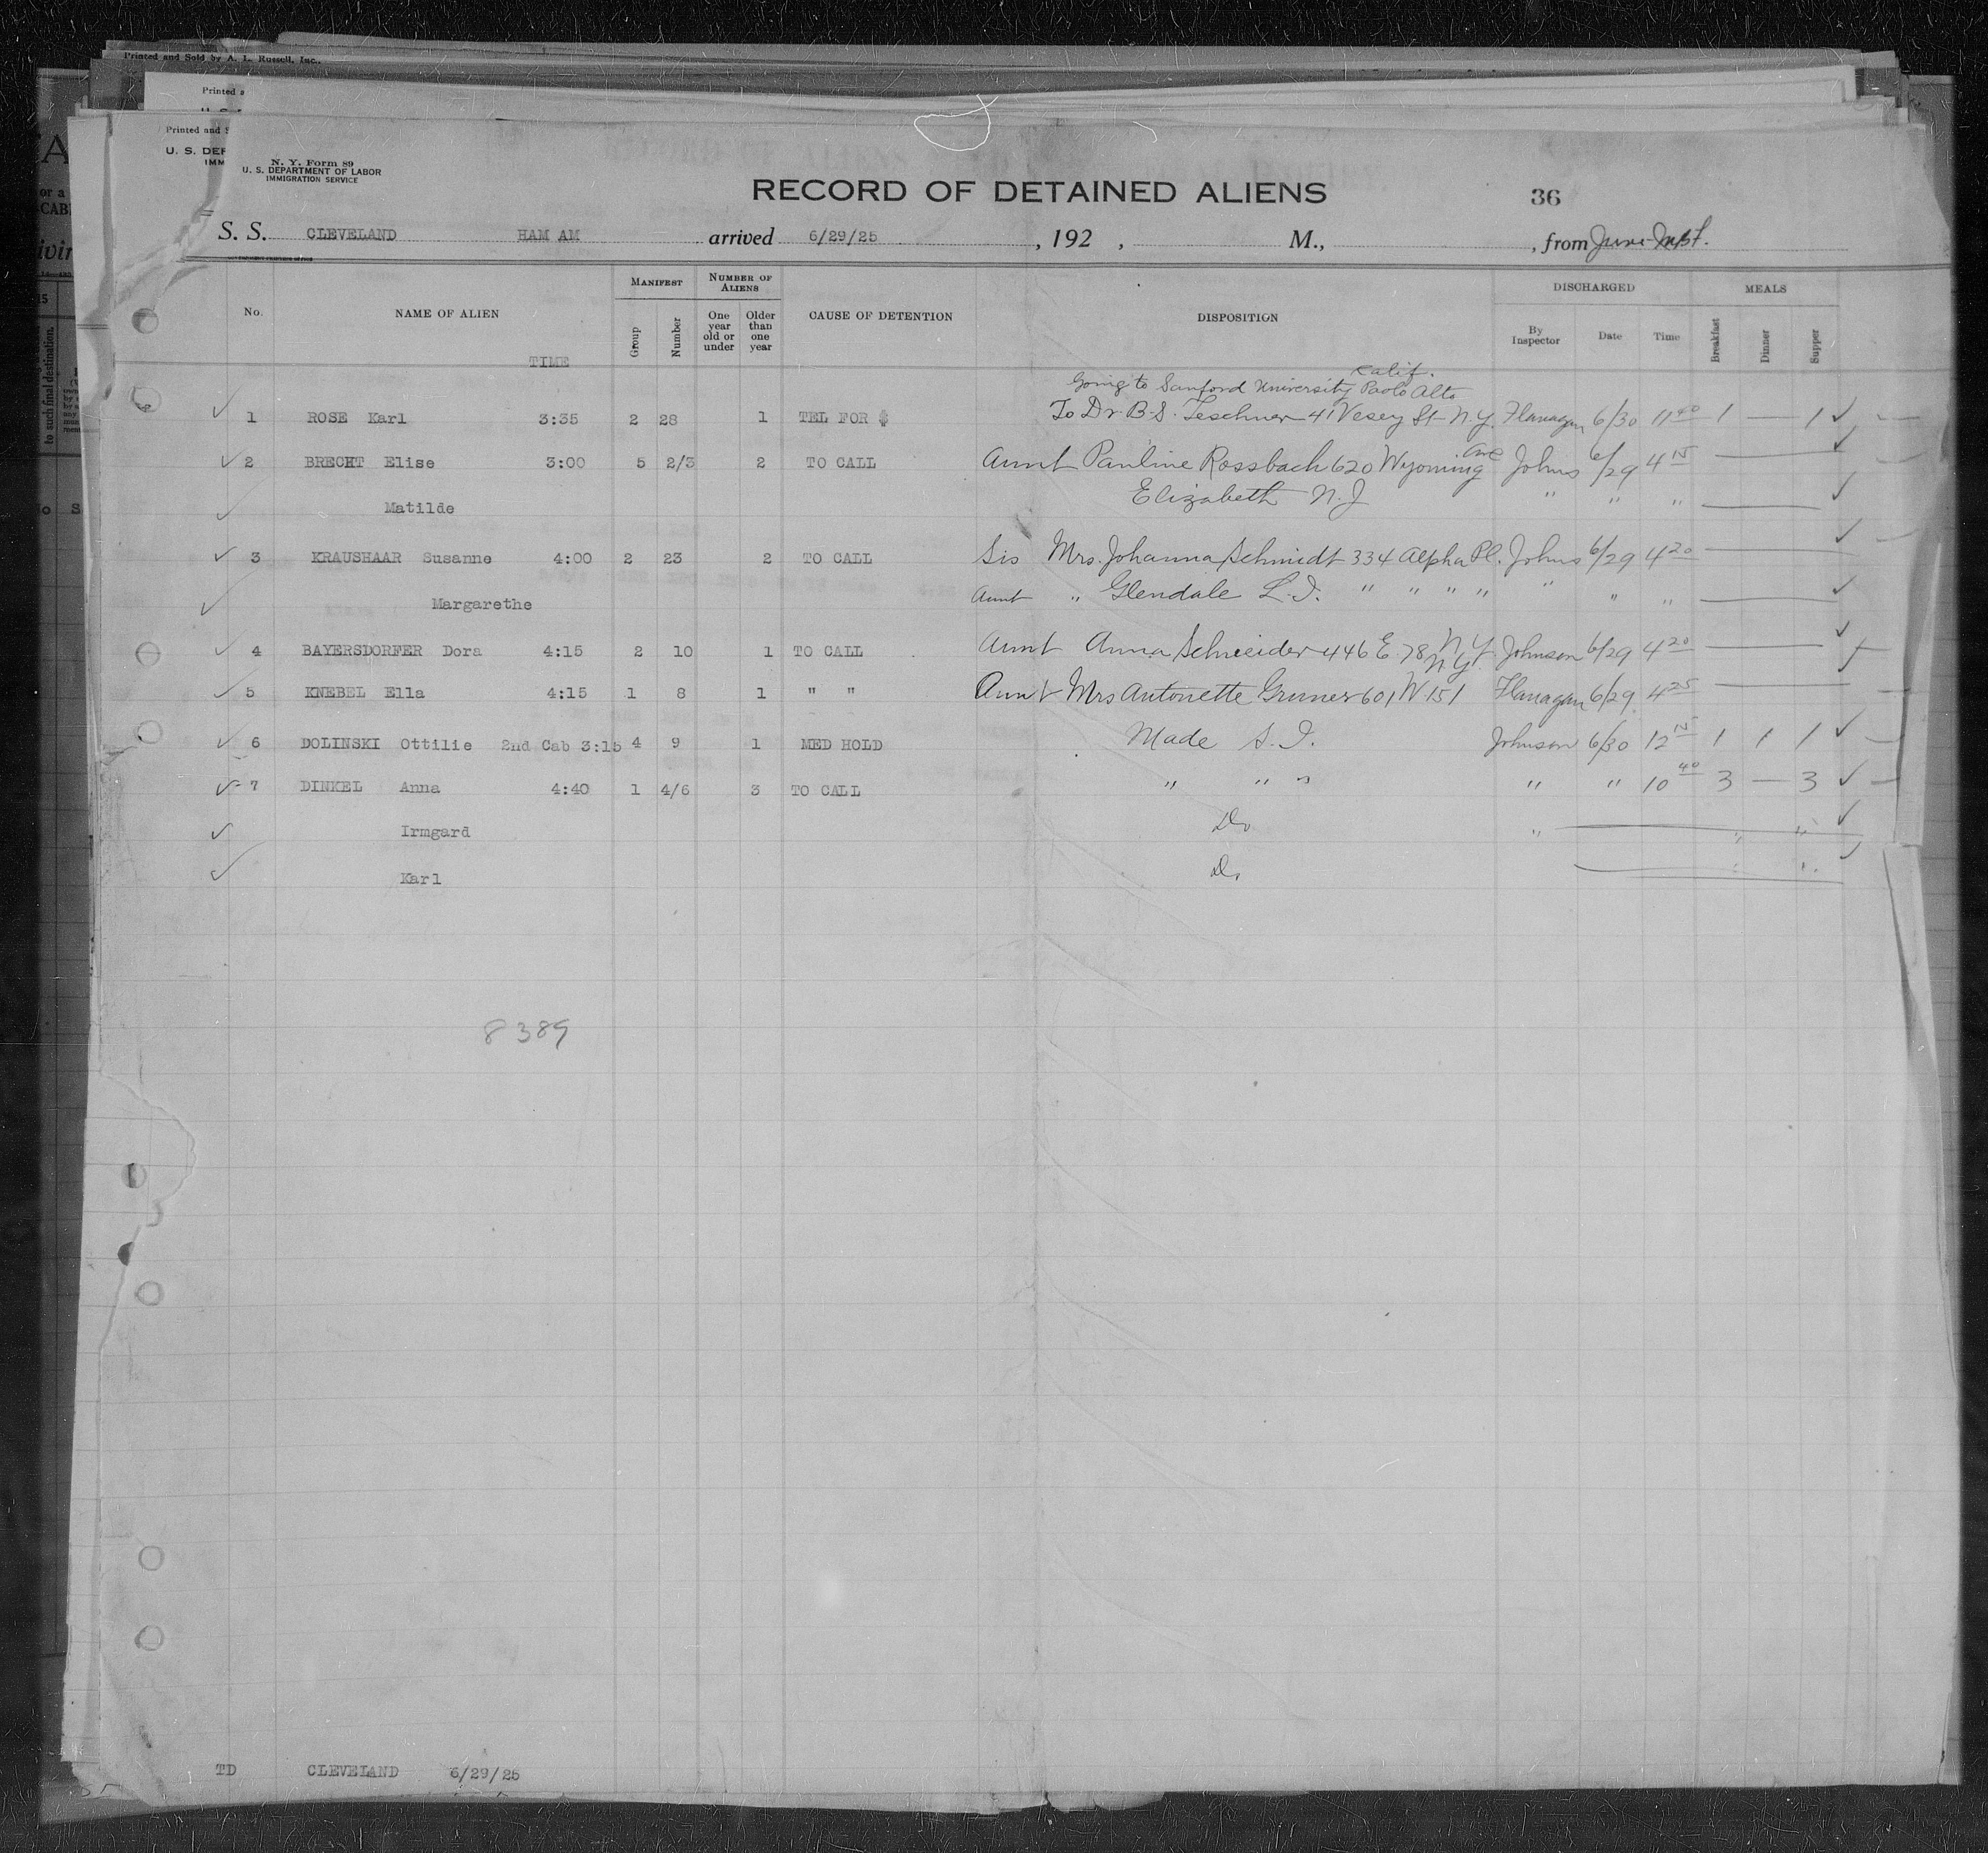 Printed and Sold by A. L. Russell, Inc.
Printed a
Printed and S
U. S. DEP
IMM
N. Y. Form 89
U. S. DEPARTMENT OF LABOR
IMMIGRATION SERVICE
RECORD OF DETAINED ALIENS 36
S. S. CLEVELAND HAM AM arrived 6/29/25 , 192 , M., , from
MANIFEST NUMBER OF ALIENS DISCHARGED MEALS
No. NAME OF ALIEN TIME Group Number One year old or under Older than one year CAUSE OF DETENTION DISPOSITION By Inspector Date Time Breakfast Dinner Supper
Calif.
Going to Sanford University Paolo Alto
1 ROSE Karl 3:35 2 28 1 TEL FOR $ To Dr. B. S. Teschner 41 Vesey St N.Y. Flanagan 6/30 11 40 1 — 1 ✓
2 BRECHT Elise 3:00 5 2/3 2 TO CALL Aunt Pauline Rossbach 620 Wyoming Ave Johns 6/29 4 15 ✓
Matilde Elizabeth N.J " " " ✓
3 KRAUSHAAR Susanne 4:00 2 23 2 TO CALL Sis Mrs. Johanna Schmidt 334 Alpha Pl. Johns 6/29 4 20 ✓
Margarethe Aunt " Glendale L.I. " " " " " " " ✓
4 BAYERSDORFER Dora 4:15 2 10 1 TO CALL Aunt Anna Schneider 446 E 78 N.Y. Johnson 6/29 4 20 ✓
N.Y.
5 KNEBEL Ella 4:15 1 8 1 " " Aunt Mrs Antonette Gruner 601 W 151 Flanagan 6/29 4 25
6 DOLINSKI Ottilie 2nd Cab 3:15 4 9 1 MED HOLD Made S.I. Johnson 6/30 12 15 1 1 1 ✓
7 DINKEL Anna 4:40 1 4/6 3 TO CALL " " " " " 10 40 3 — 3 ✓
Irmgard Do " " " ✓
Karl Do " " ✓
8389
TD CLEVELAND 6/29/25